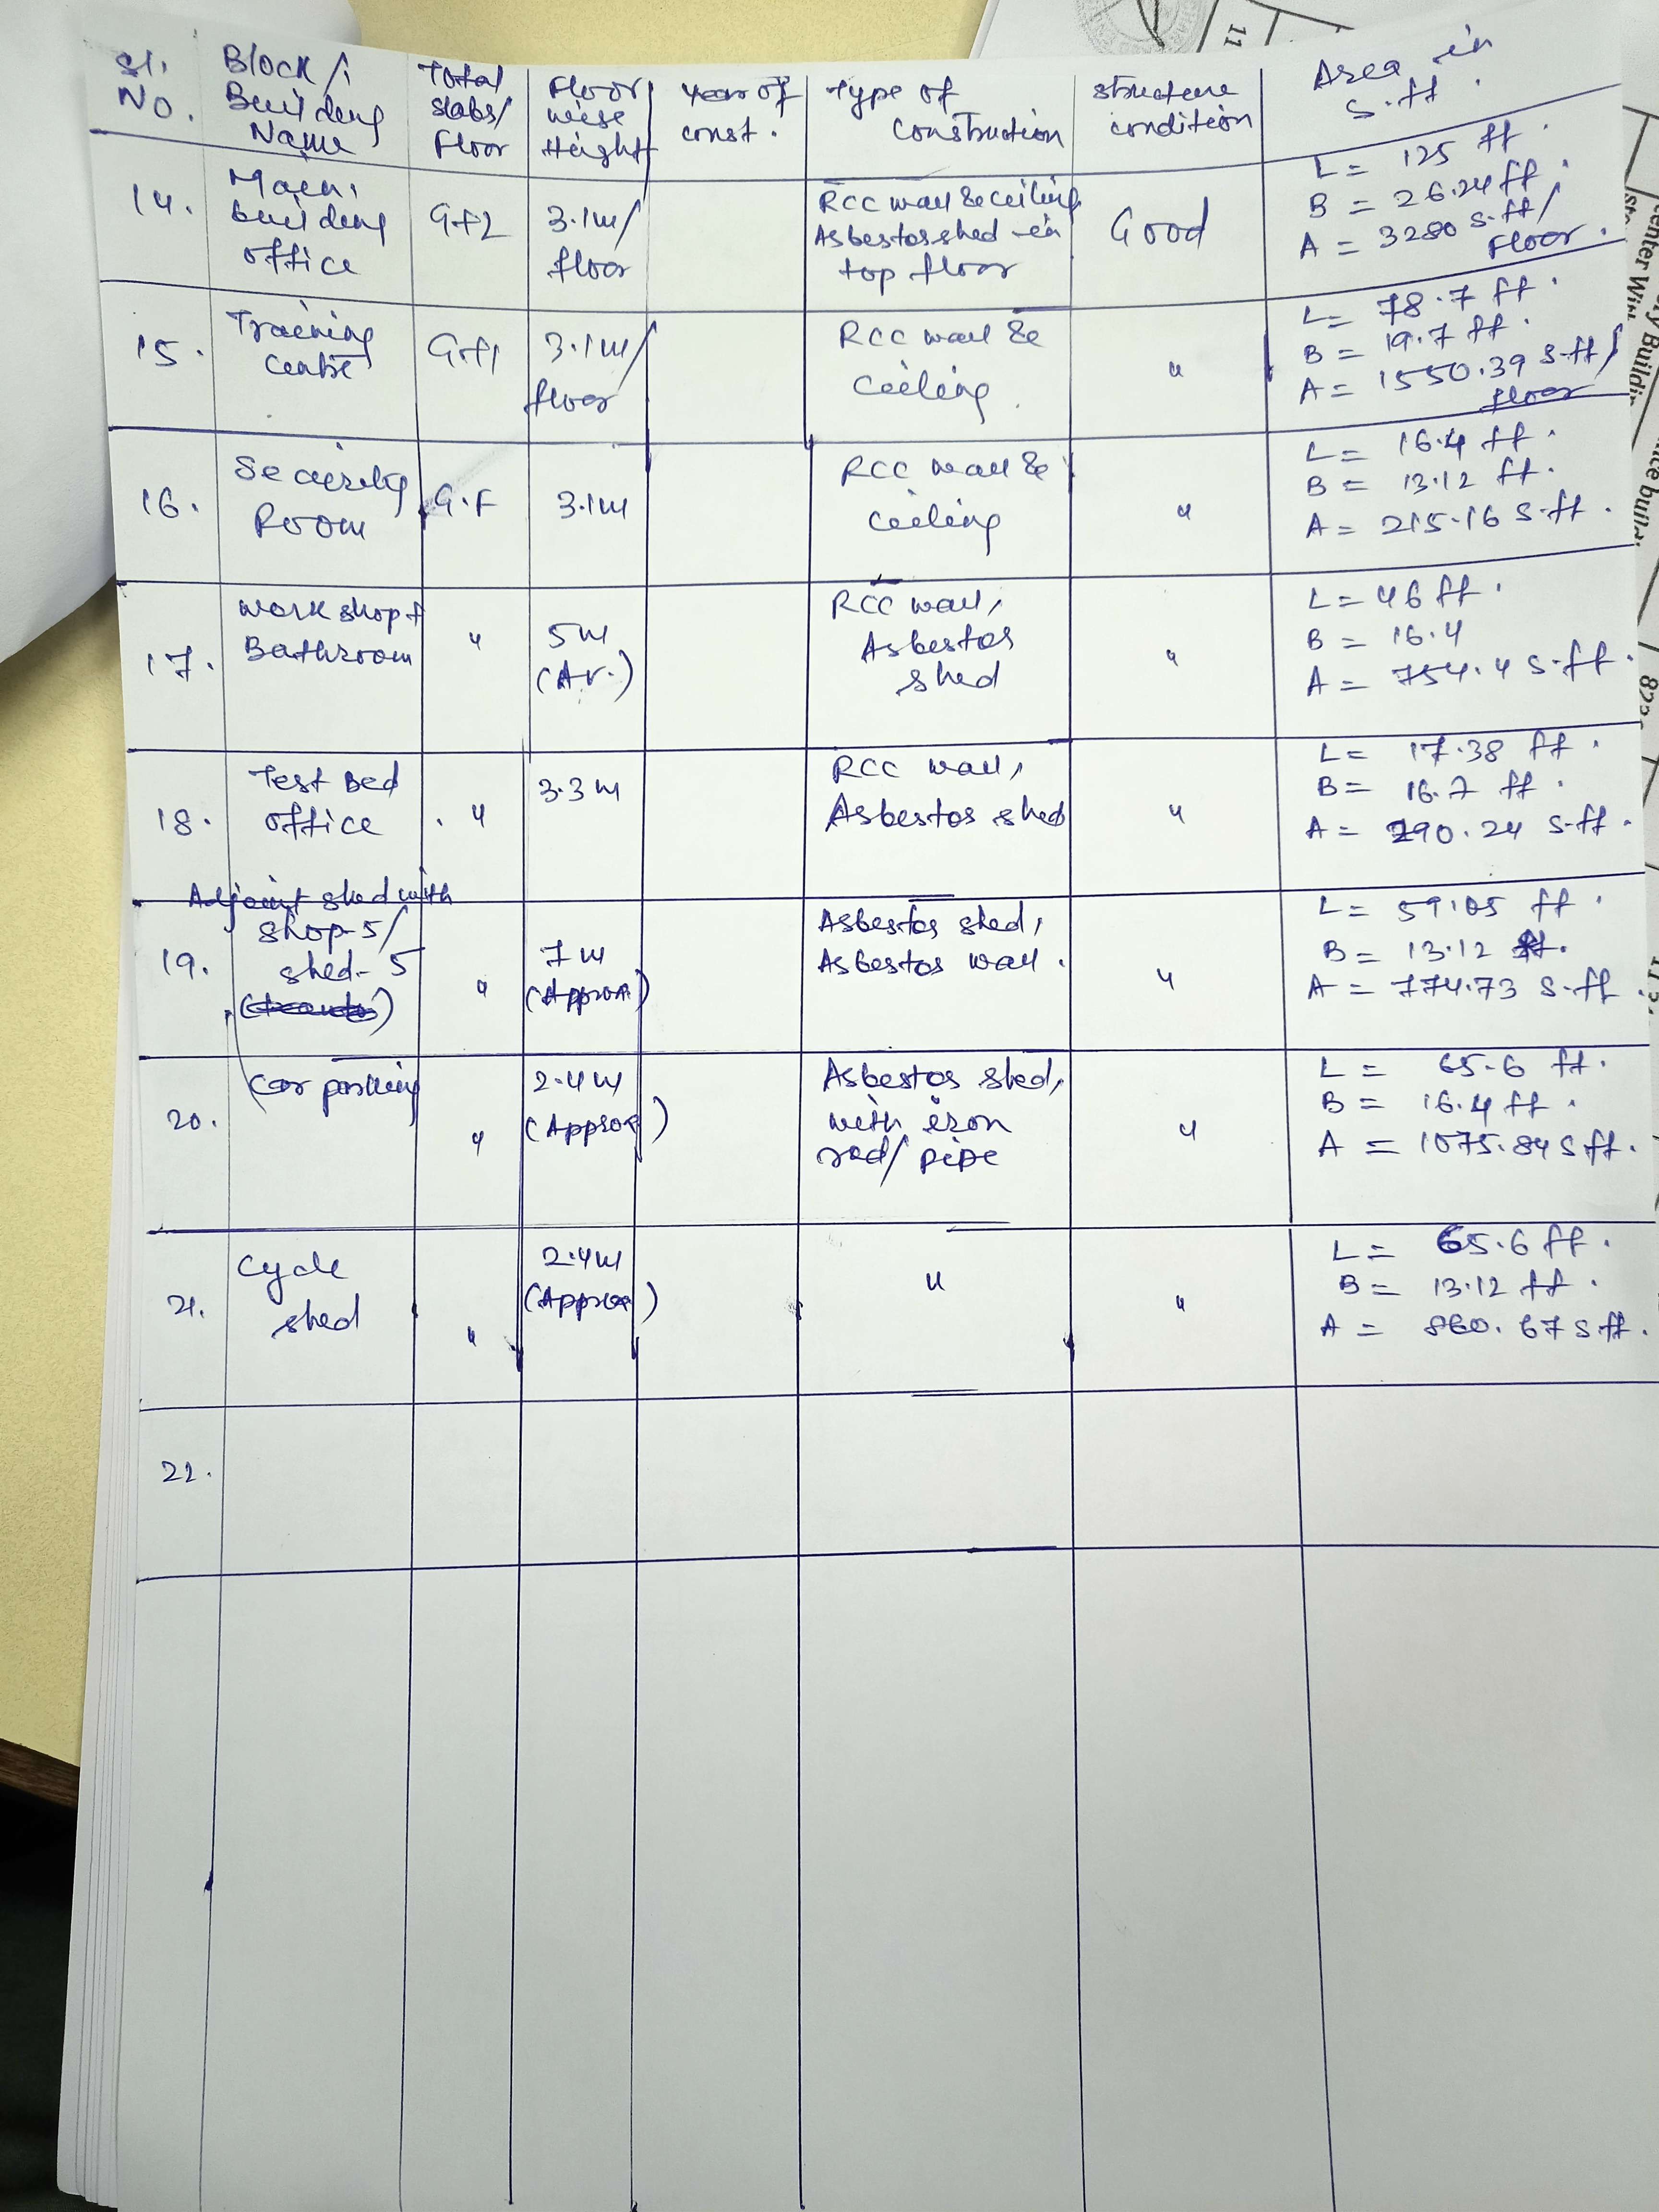 Sl. No.
Block/ Building Name
Total slabs/ Floor
Floor wise Height
Year of const.
Type of Construction
structure condition
Area in S.ft.
14.
Main building office
G+2
3.1m/ floor
RCC wall & ceiling, Asbestos shed in top floor
Good
L = 125 ft.
B = 26.24 ft.
A = 3280 s.ft/ Floor.
15.
Training Centre
G+1
3.1m/ floor
RCC wall & Ceiling.
"
L = 78.7 ft.
B = 19.7 ft.
A = 1550.39 s.ft/ floor
16.
Security Room
G.F
3.1m
RCC wall & Ceiling
"
L = 16.4 ft.
B = 13.12 ft.
A = 215.16 s.ft.
17.
Work shop + Bathroom
"
5m (Av.)
RCC wall, Asbestos shed
"
L = 46 ft.
B = 16.4
A = 754.4 s.ft.
18.
Test Bed office
"
3.3m
RCC wall, Asbestos shed
"
L = 17.38 ft.
B = 16.7 ft.
A = 290.24 s.ft.
19.
Adjoint shed with shop-5/ shed-5
"
7m (Approx)
Asbestos shed, Asbestos wall.
"
L = 59.05 ft.
B = 13.12 ft.
A = 774.73 s.ft.
20.
Car parking
"
2.4m (Approx)
Asbestos shed, with iron rod/ pipe
"
L = 65.6 ft.
B = 16.4 ft.
A = 1075.84 s ft.
21.
Cycle shed
"
2.4m (Approx)
"
"
L = 65.6 ft.
B = 13.12 ft.
A = 860.67 s ft.
22.